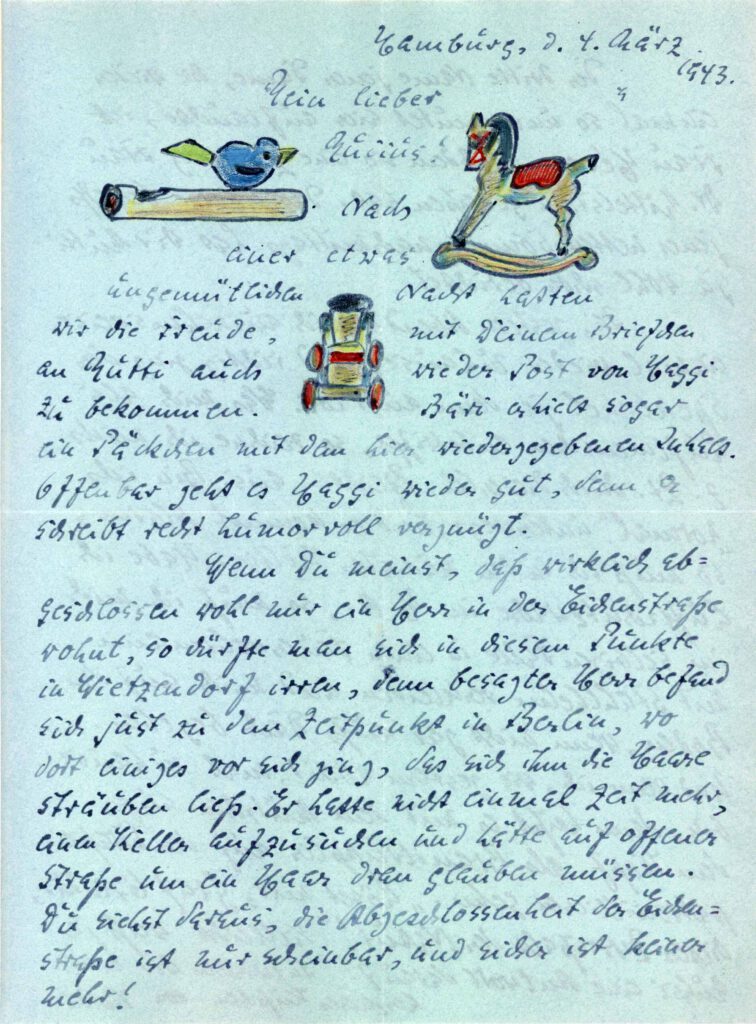 Hamburg, d. 4. März
1943.
Mein lieber
Nach
einer etwas
ungemütlichen Nacht hatten
wir die Freude, mit Deinem Briefchen
an Mutti auch wieder Post von Haggi
zu bekommen. Bäri erhielt sogar
ein Päckchen mit dem hier wiedergegebenen Inhalt.
Offenbar geht es Haggi wieder gut, denn er
schreibt recht humorvoll vergnügt.
Wenn Du meinst, daß wirklich ab=
geschlossen wohl nur ein Herr in der Eichenstraße
wohnt, so dürfte man sich in diesem Punkte
in Wietzendorf irren, denn besagter Herr befand
sich just zu dem Zeitpunkt in Berlin, wo
dort einiges vor sich ging, das sich ihm die Haare
sträuben ließ. Er hatte nicht einmal Zeit mehr,
einen Keller aufzusuchen und hätte auf offener
Straße um ein Haar dran glauben müssen.
Du siehst daraus, die Abgeschlossenheit der Eichen=
straße ist nur scheinbar, und sicher ist keiner
mehr!